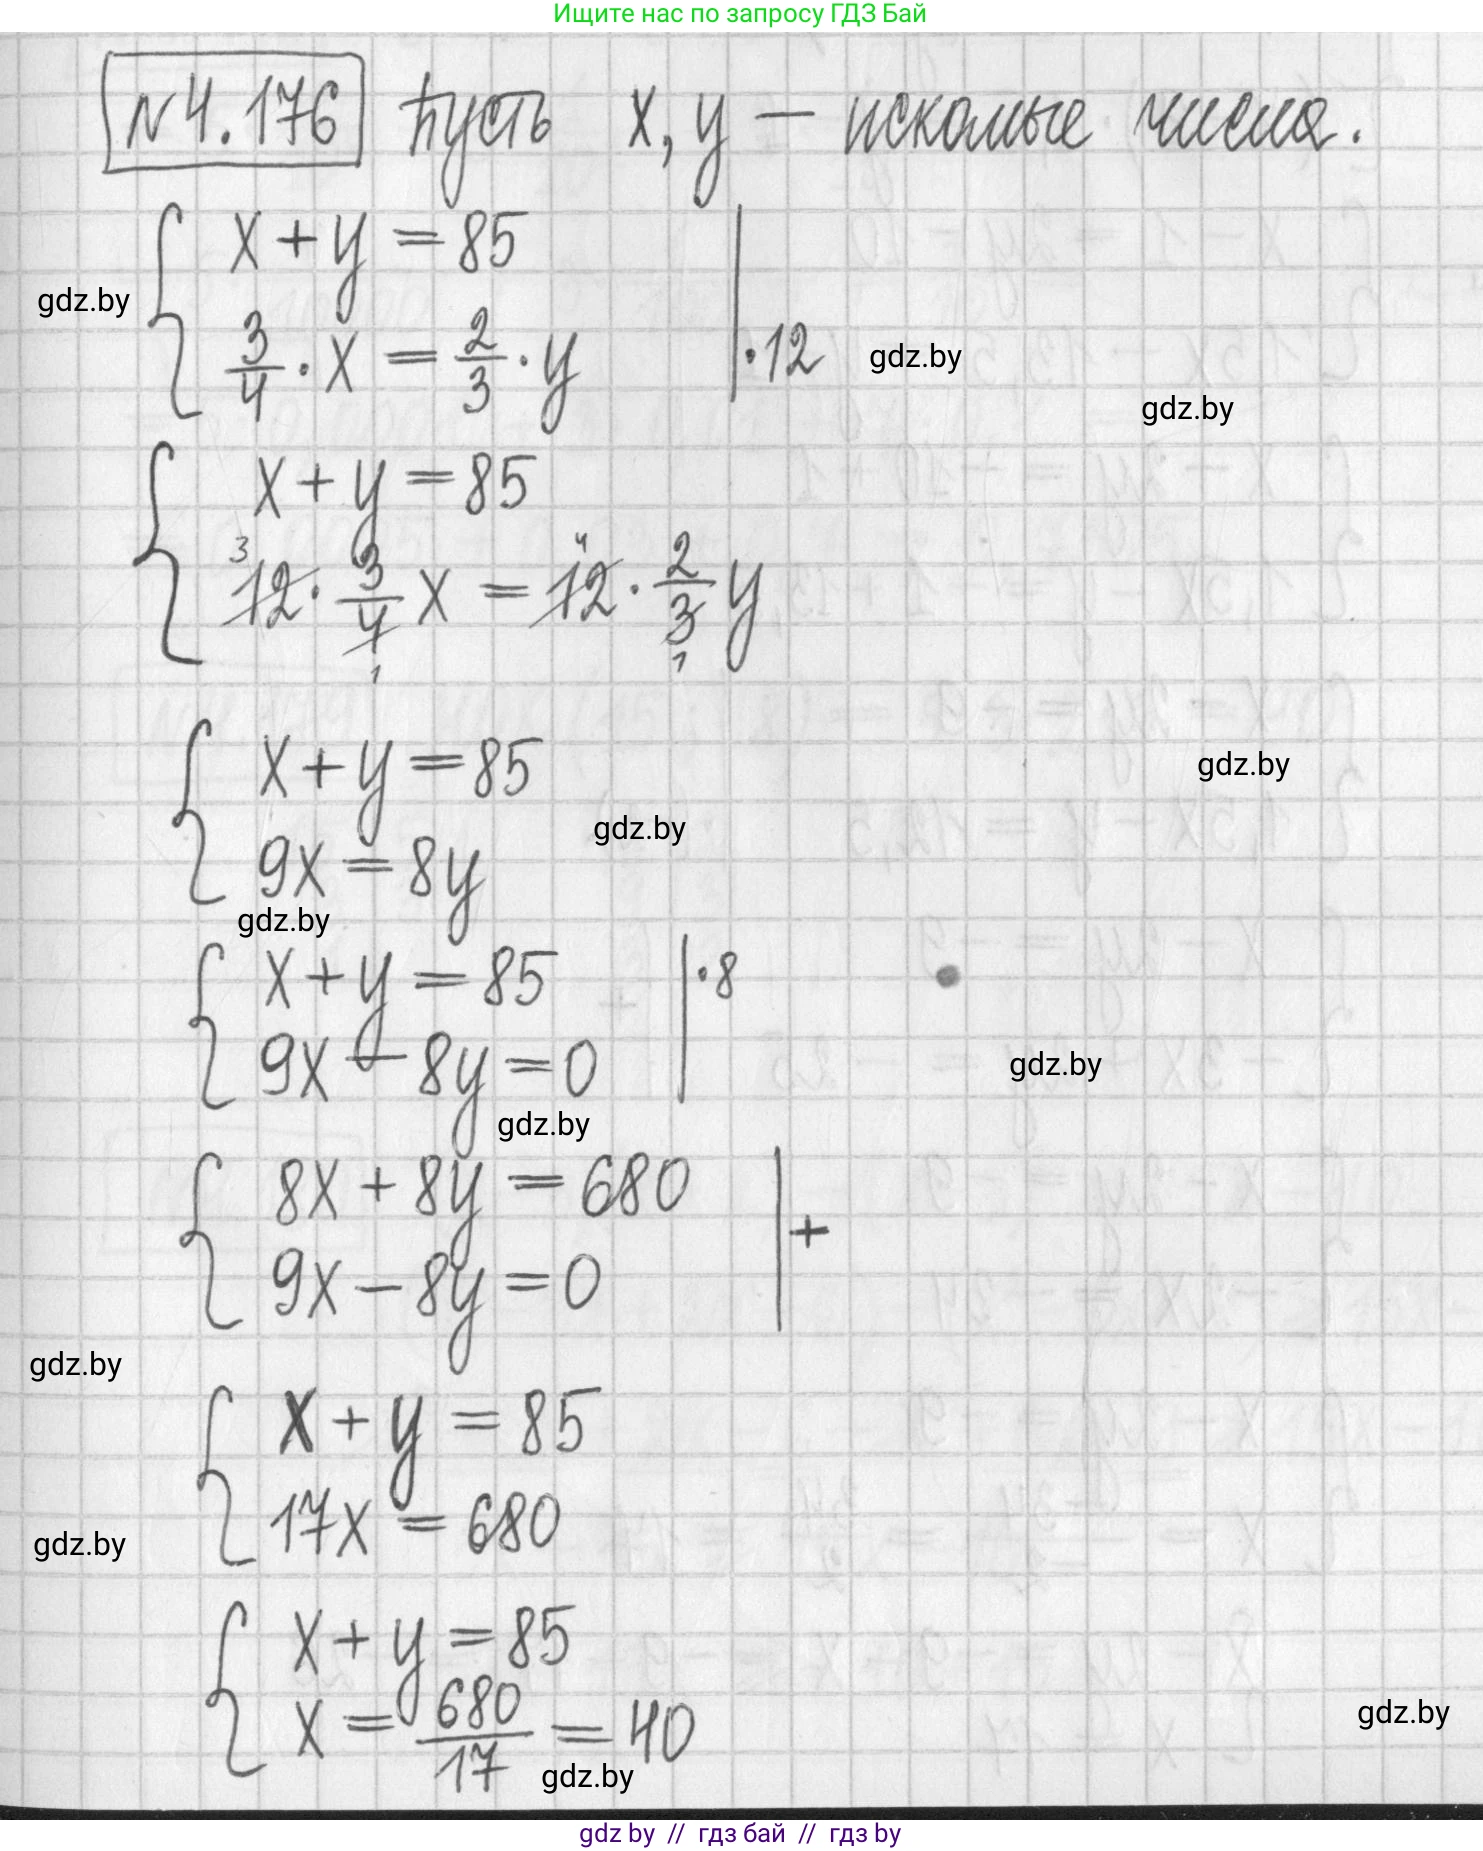 Ищите нас по запросу ГДЗ Бай
№4.176 Пусть x, y — искомые числа.
x + y = 85
gdz.by
3/4 · x = 2/3 · y | · 12 gdz.by
gdz.by
x + y = 85
3 4
12 · 3/4 x = 12 · 2/3 y
1 1
x + y = 85
gdz.by
gdz.by
9x = 8y
gdz.by
x + y = 85 | · 8
9x − 8y = 0
gdz.by
gdz.by
8x + 8y = 680
+
9x − 8y = 0
gdz.by
x + y = 85
17x = 680
gdz.by
x + y = 85
x = 680/17 = 40
gdz.by
gdz.by
gdz by // гдз бай // гдз by